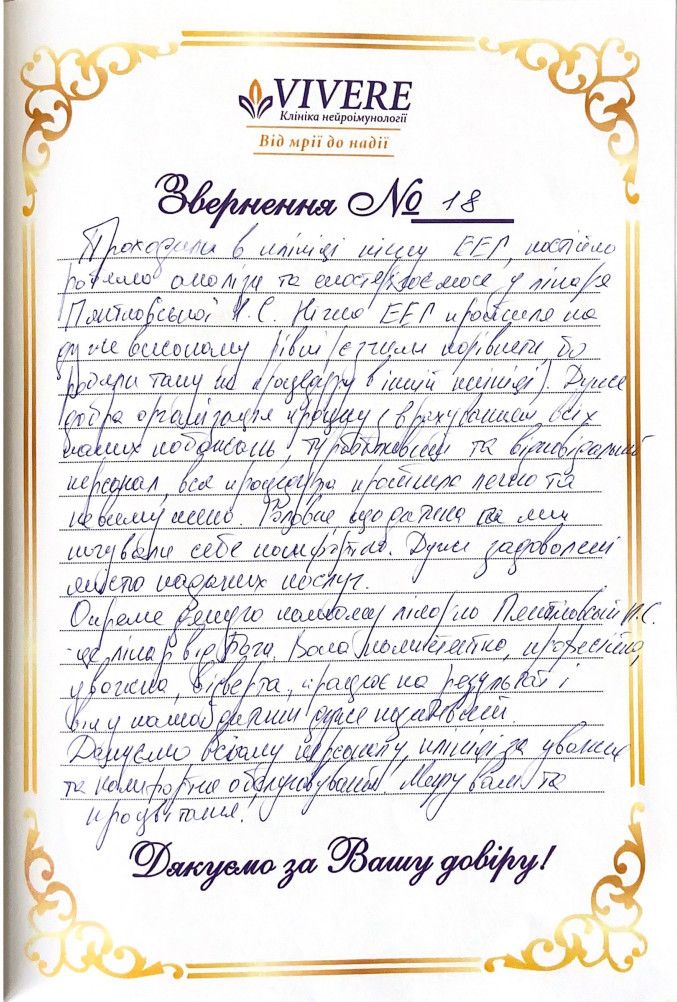 VIVERE
Клініка нейроімунології
Від мрії до надії
Звернення № 18
Проходили в клініці нічну ЕЕГ, постійно
робимо аналізи та спостерігаємося у лікаря
Пянтковської Н.С. Нічна ЕЕГ пройшла на
дуже високому рівні (є з чим порівняти, бо
робили таку ж процедуру в іншій клініці). Дуже
добра організація процесу з врахуванням всіх
наших побажань, турботливий та відповідальний
персонал, вся процедура пройшла легко та
невимушено. Головне що дитина та ми
почували себе комфортно. Дуже задоволені
якістю наданих послуг.
Окремо дякую нашому лікарю Н.С.
- це лікар від Бога. Вона компетентна, професійна,
уважна, відверта, працює на результат і
він у нашої дитини дуже позитивний.
Дякуємо всьому персоналу клініці за уважне
та комфортне обслуговування. Миру Вам та
процвітання.
Дякуємо за Вашу довіру!